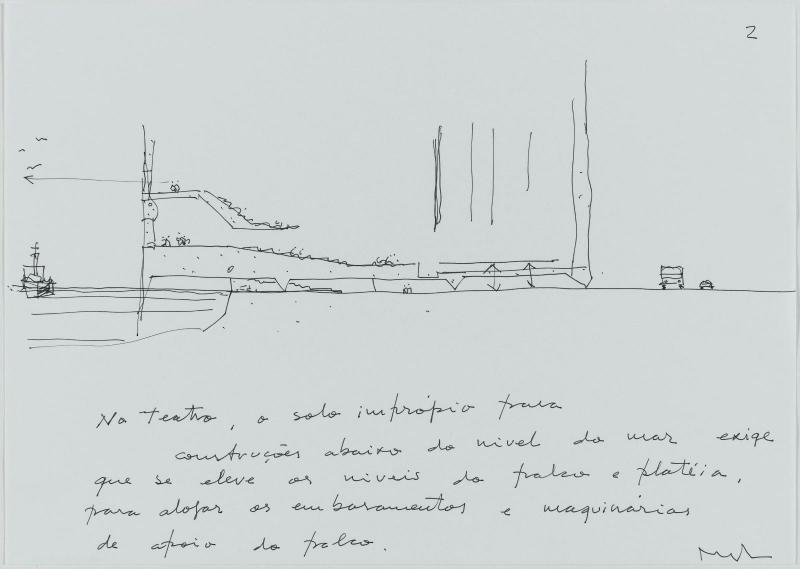 2
No Teatro, o solo impróprio para
construções abaixo do nivel do mar exige
que se eleve os niveis do palco e platéia,
para alojar os embasamentos e maquinárias
de apoio do palco.